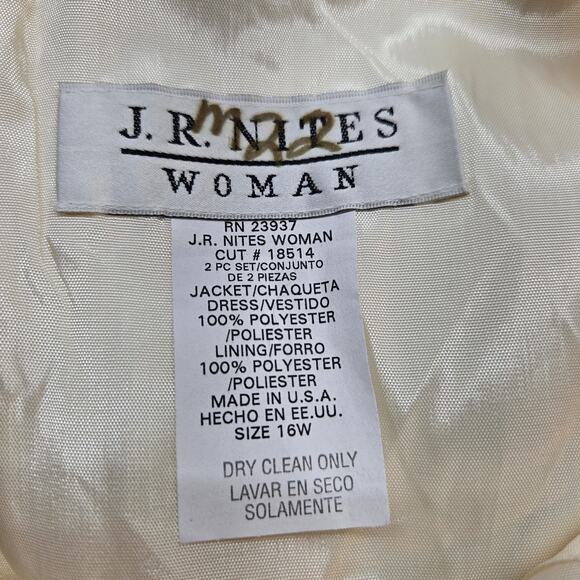 J.R. NITES
m22
WOMAN
RN 23937
J.R. NITES WOMAN
CUT # 18514
2 PC SET/CONJUNTO
DE 2 PIEZAS
JACKET/CHAQUETA
DRESS/VESTIDO
100% POLYESTER
/POLIESTER
LINING/FORRO
100% POLYESTER
/POLIESTER
MADE IN U.S.A.
HECHO EN EE.UU.
SIZE 16W
DRY CLEAN ONLY
LAVAR EN SECO
SOLAMENTE